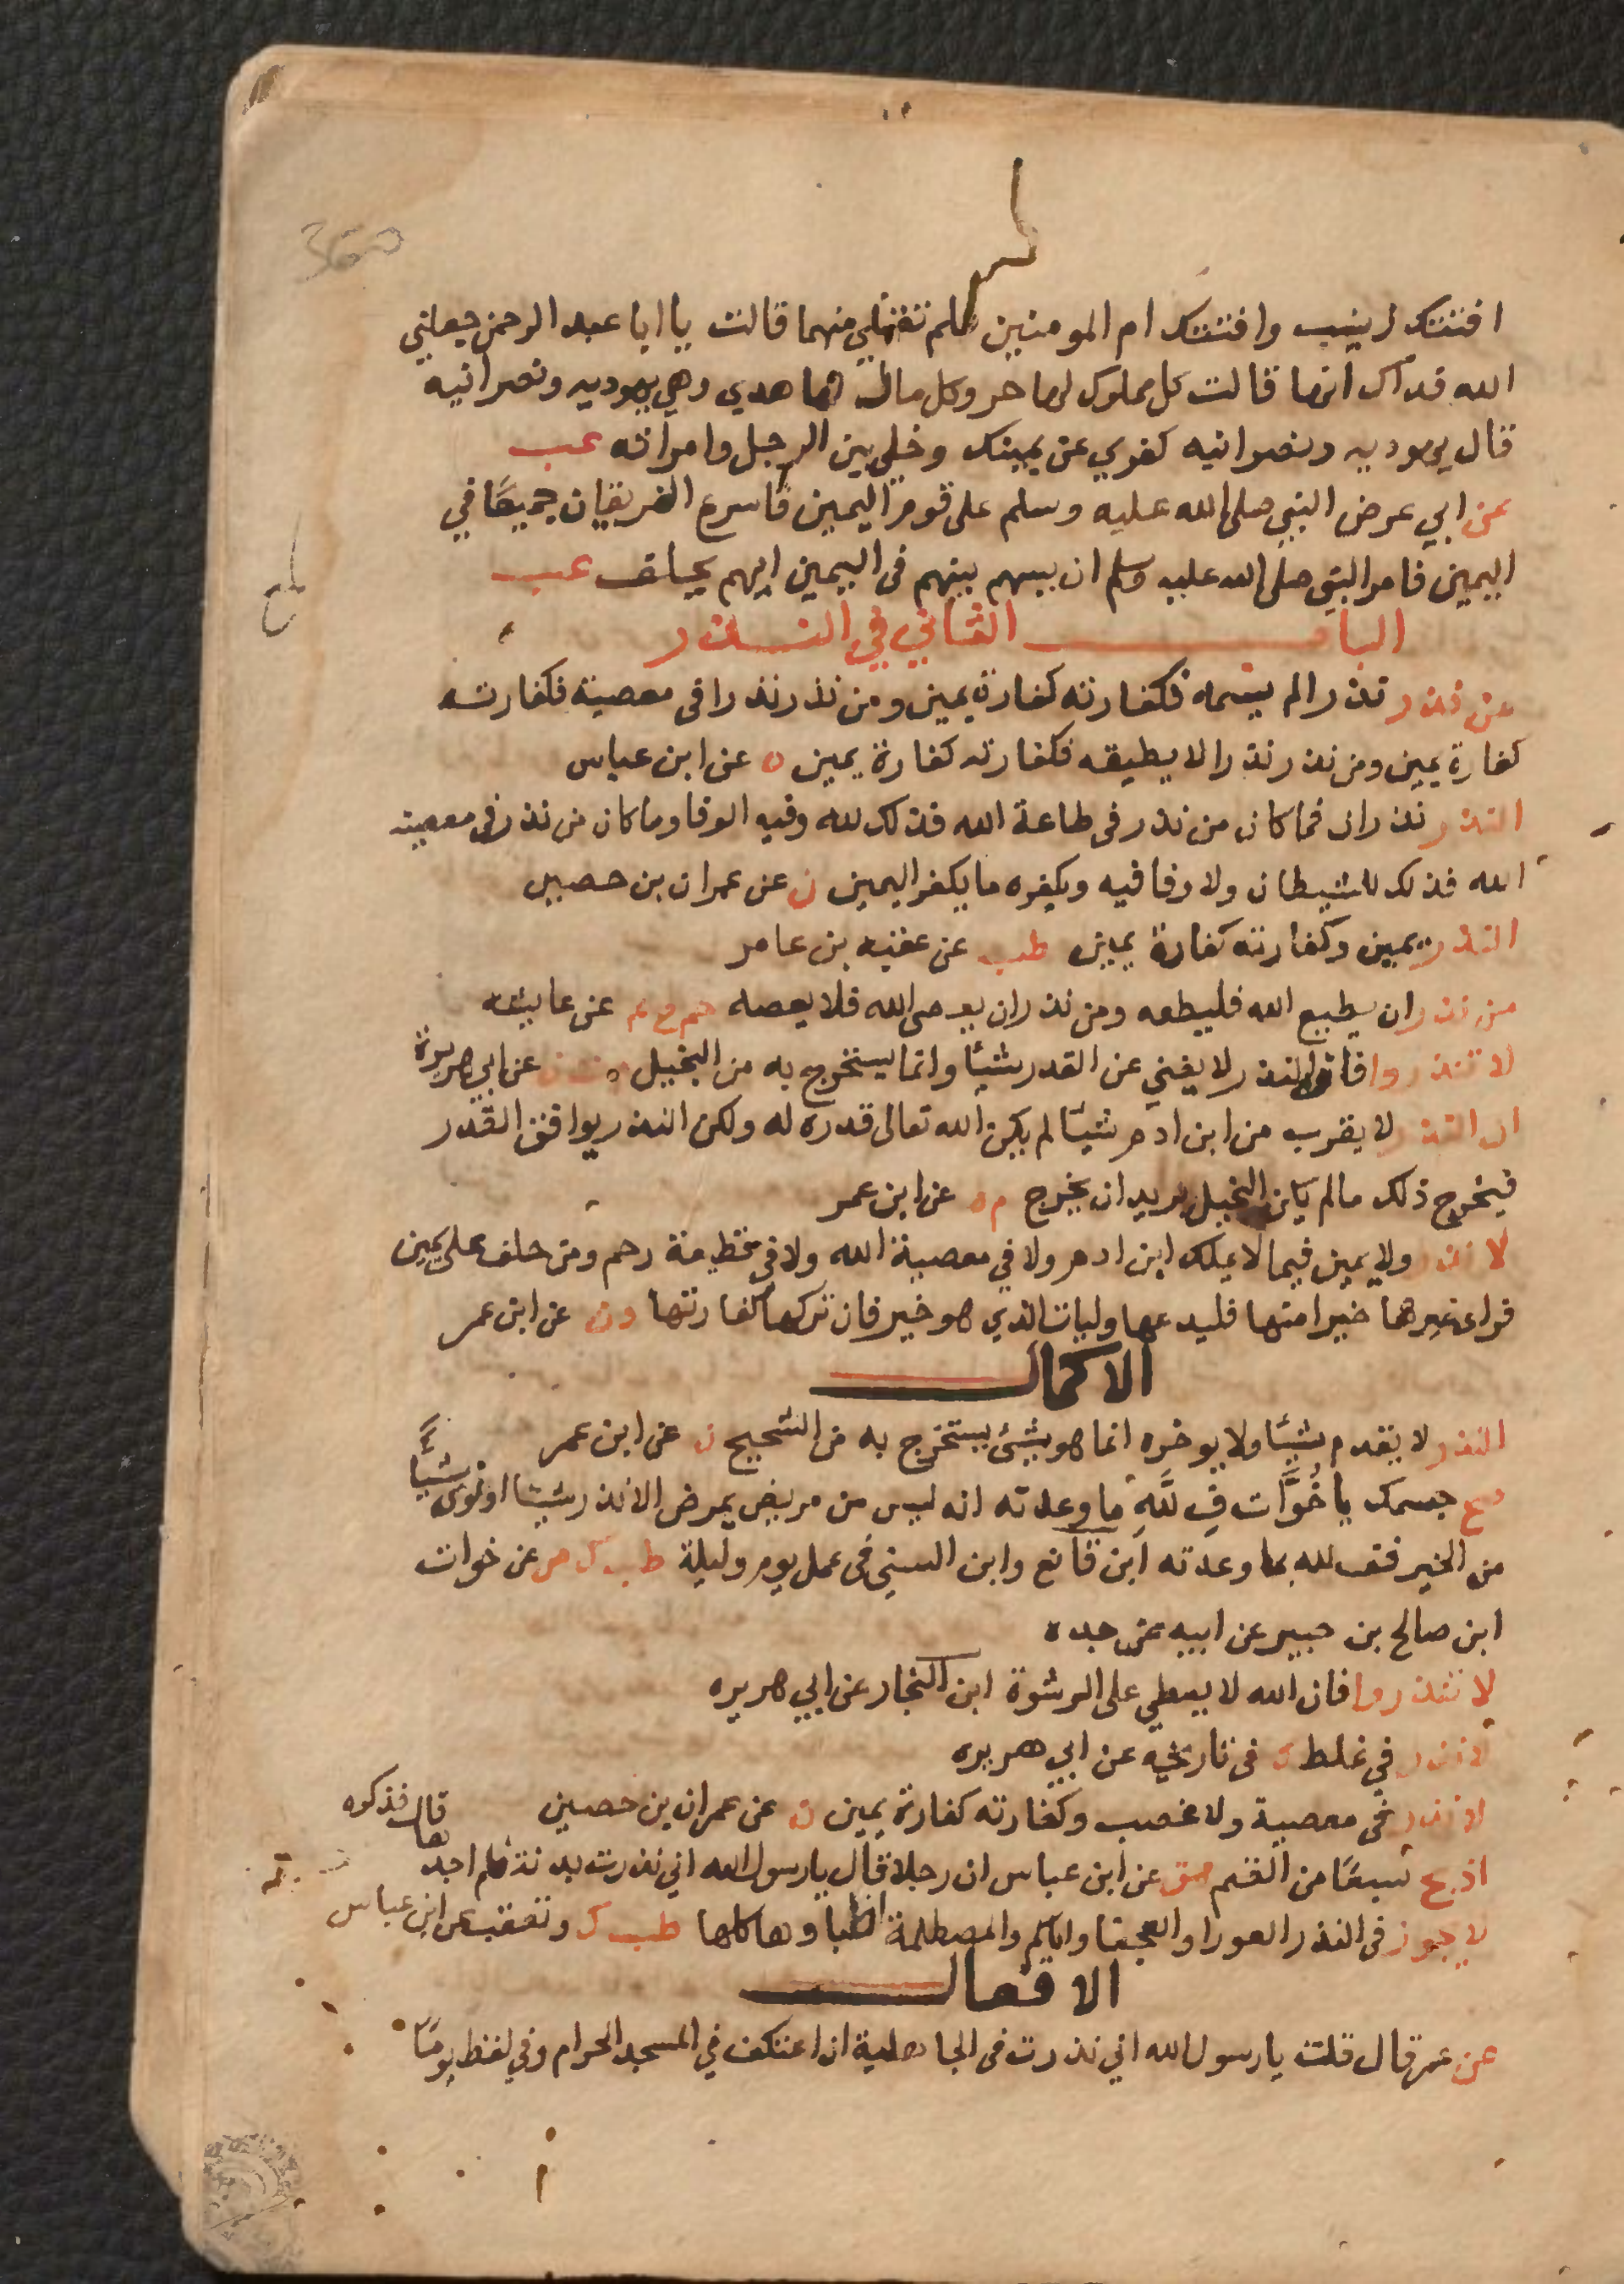 360
افتتك زينب وافتتك ام المومنين فلم تقبلي منهما قالت يا ابا عبد الرحمن جعلني
الله فداك انها قالت كل مملوك لها حر وكل مال لها هدي وهي يهوديه ونصرانيه
قال يهوديه ونصرانيه كفري عن يمينك وخلي بين الرجل وامراته عب
عن ابي عرض النبي صلى الله عليه وسلم على قوم اليمين فاسرع الفريقان جميعًا في
اليمين فامر النبي صلى الله عليه وسلم ان يسهم بينهم في اليمين ايهم يحلف عب
الباب الثاني في النذر
من نذر نذرا لم يسمه فكفارته كفارة يمين ومن نذر نذرا في معصية فكفارته
كفارة يمين ومن نذر نذرا لا يطيقه فكفارته كفارة يمين ه عن ابن عباس
النذر نذران فما كان من نذر في طاعة الله فذلك لله وفيه الوفا وما كان من نذر في معصية
الله فذلك للشيطان ولا وفا فيه ويكفره ما يكفر اليمين ن عن عمران بن حصين
النذر يمين وكفارته كفارة يمين طب عن عقبه بن عامر
من نذر ان يطيع الله فليطعه ومن نذر ان يعصى الله فلا يعصه حم خ عم عن عايشه
لا تنذروا فان النذر لا يغني عن القدر شيئًا وانما يستخرج به من البخيل م ت ن عن ابي هريرة
ان النذر لا يقرب من ابن ادم شيئًا لم يكن الله تعالى قدره له ولكن النذر يوافق القدر
فيخرج ذلك مالم يكن البخيل يريد ان يخرج م ه عن ابن عمر
لا نذر ولا يمين فيما لا يملك ابن ادم ولا في معصية الله ولا في قطيعة رحم ومن حلف على يمين
فراى غيرها خيرا منها فليدعها وليات الذي هو خير فان تركها كفارتها د ن عن ابن عمر
الاكمال
النذر لا يقدم شيئًا ولا يوخره انما هو شيئ يستخرج به من الشحيح ن عن ابن عمر
صح جسمك يا خُوَّات فِ للَّهِ ما وعدته انه ليس من مريض يمرض الا نذر شيئا او نوى شيئًا
من الخير فف لله بما وعدته ابن قانع وابن السني في عمل يوم وليلة طب ك عن خوات
ابن صالح بن جبير عن ابيه عن جده
لا تنذروا فان الله لا يعطي على الرشوة ابن النجار عن ابي هريره
لا نذر في غلط ك في تاريخه عن ابي هريره
لا نذر في معصية ولا غضب وكفارته كفارة يمين ن عن عمران بن حصين
اذبح سبعًا من الغنم حق عن ابن عباس ان رجلا قال يا رسول الله اني نذرت بدنة فلم اجدها قال فذكره
لا يجوز في النذر العورا والعجفا والمصطلمة اطباوها كلها طب ك وتعقب عن ابن عباس
الافعال
عن عمر قال قلت يا رسول الله اني نذرت في الجاهلية ان اعتكف في المسجد الحرام وفي لفظ يومًا